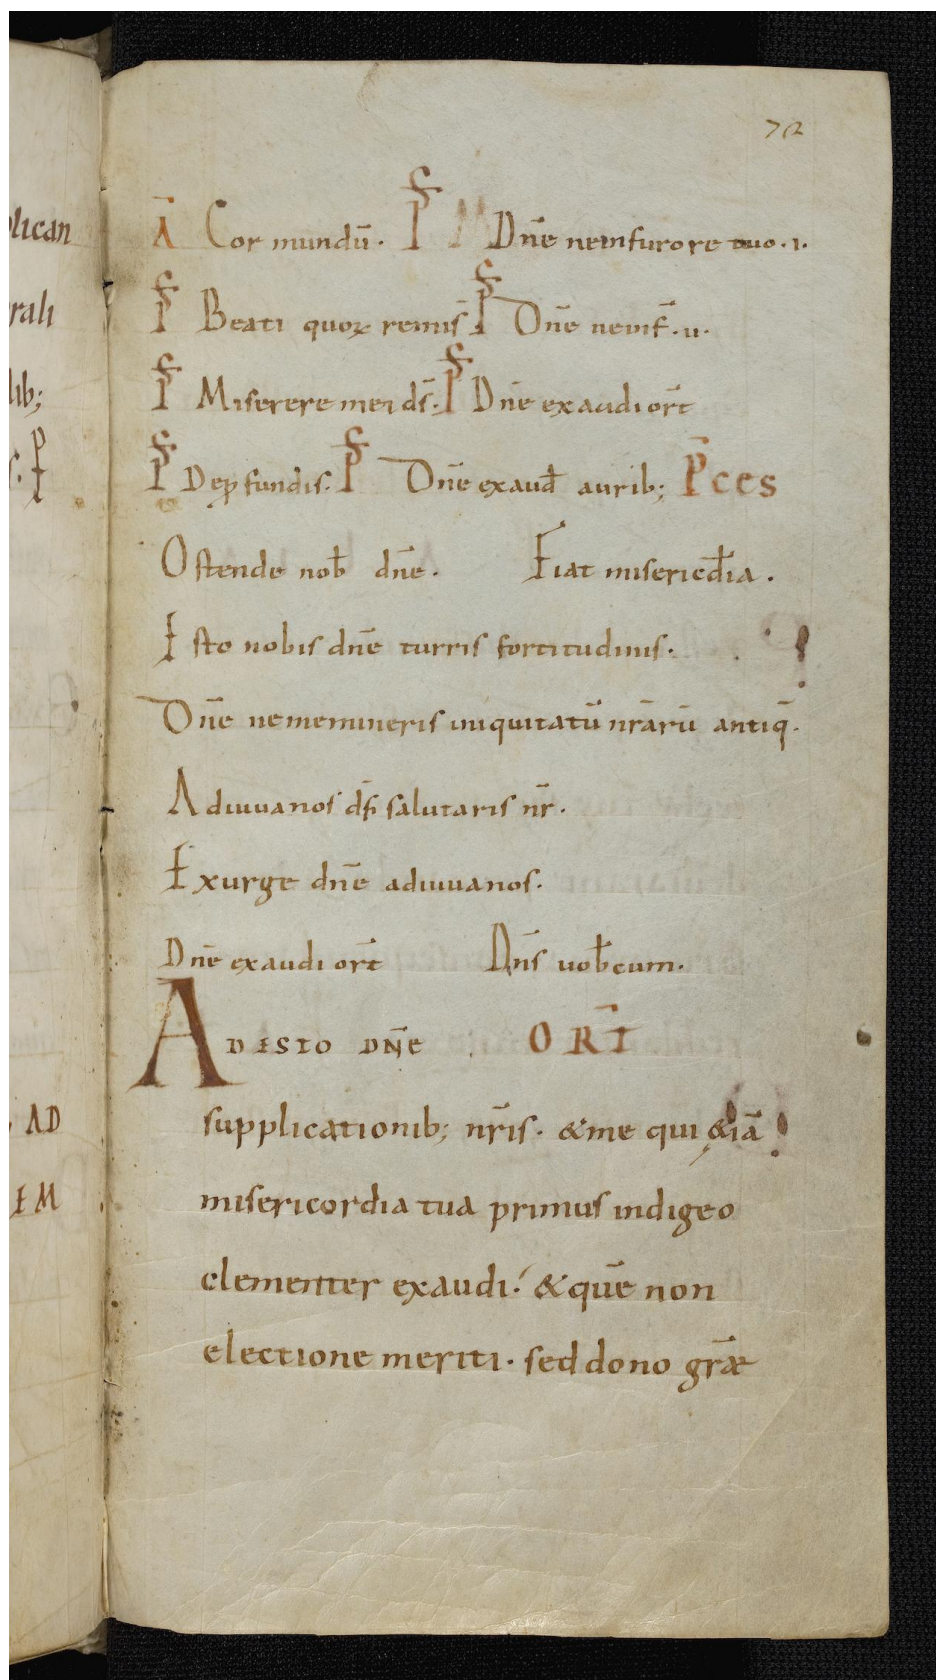 72
Ā Cor mundū. PS Dn̄e ne in furore tuo .i.
PS Beati quoꝝ remis̄ PS Dn̄e ne in f̄ .ii.
PS Miserere mei ds̄. PS Dn̄e exaudi or̄t
PS De ꝓfundis. PS Dn̄e exaud̄ aurib; P̄ces
Ostende nob̄ dn̄e. Fiat misericd̄ia.
Esto nobis dn̄e turris fortitudinis.
Dn̄e ne memineris iniquitatū nr̄arū antiq̄.
Adiuua nos ds̄ salutaris nr̄.
Exurge dn̄e adiuua nos.
Dn̄e exaudi or̄t Dn̄s uob̄cum.
ADESTO DN̄E ORT̄
supplicationib; nr̄is. & me qui &iā
misericordia tua primus indigeo
clementer exaudi. & quē non
electione meriti. sed dono gr̄æ
plican
rali
lib;
AD
EM